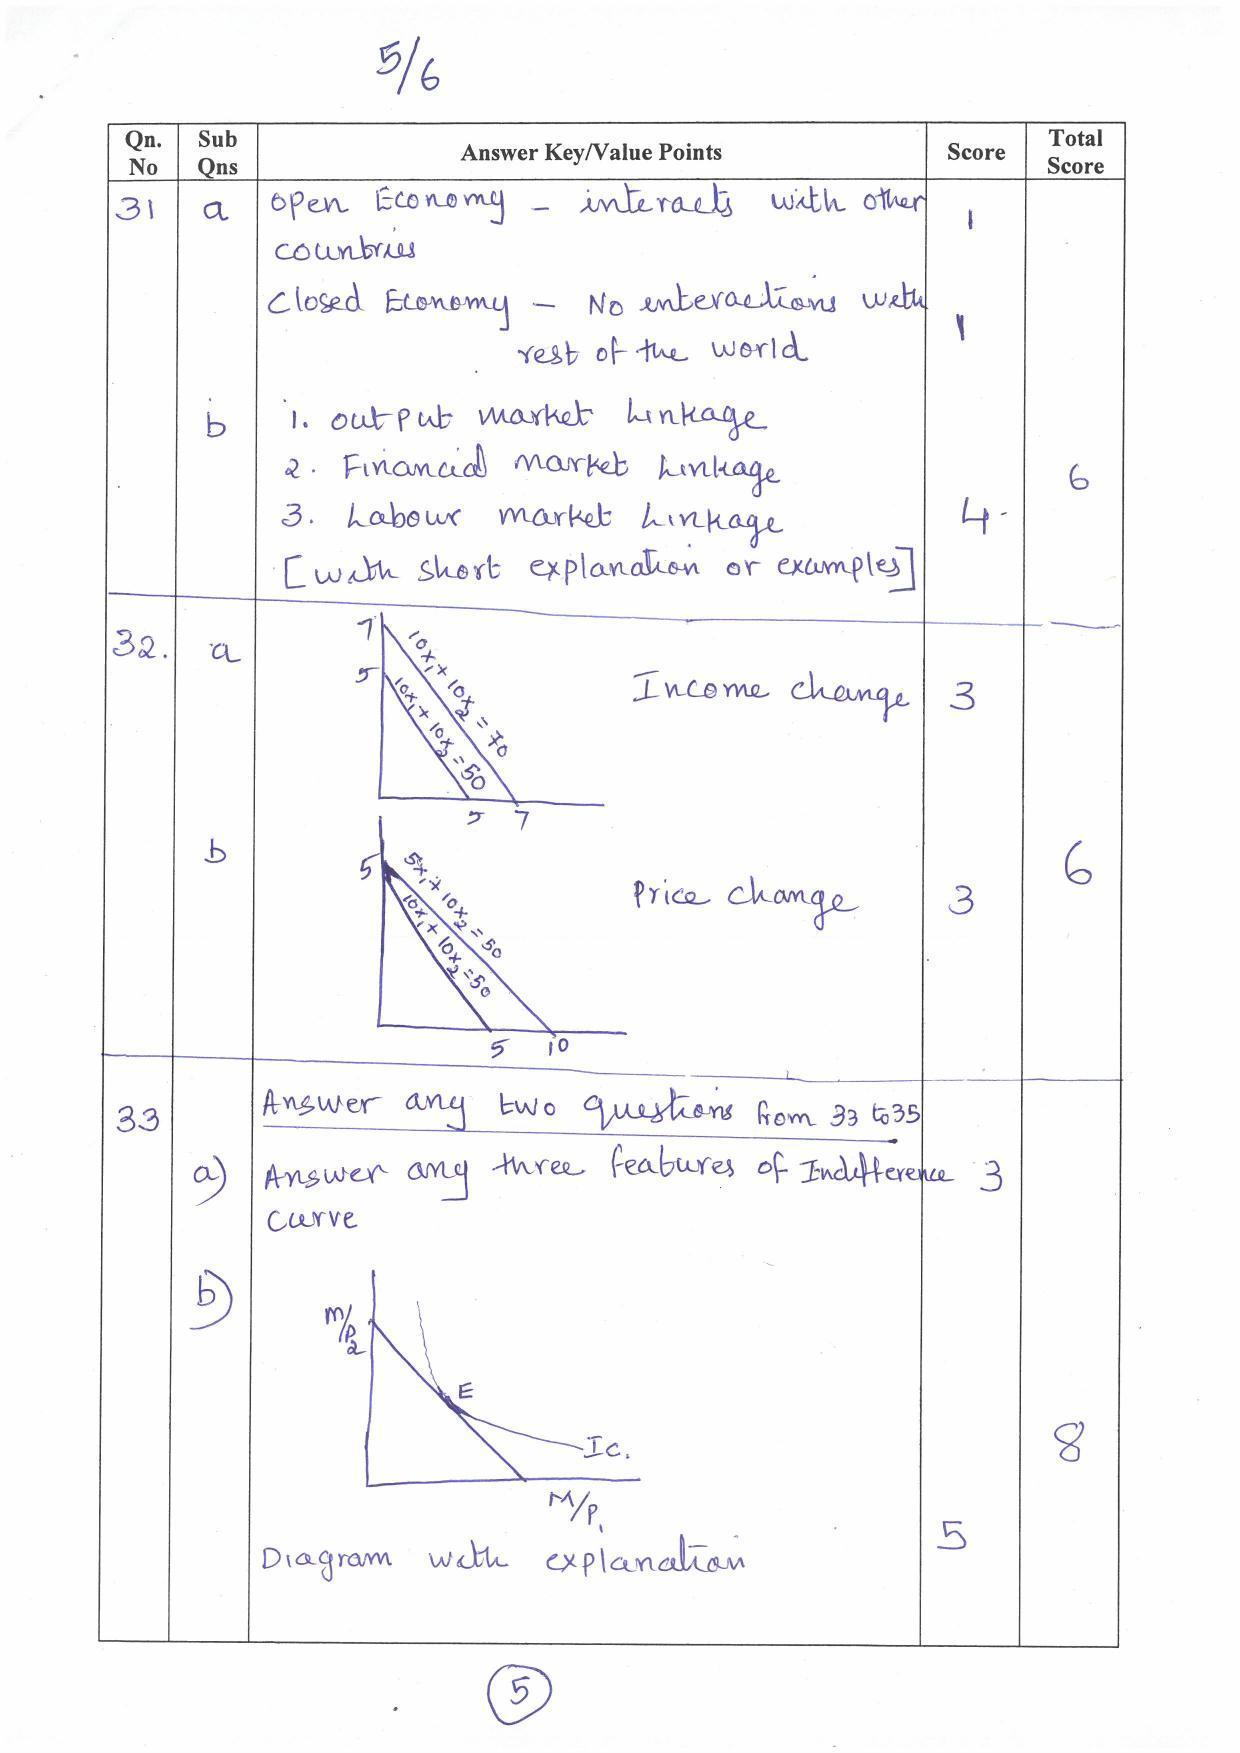 5/6
Qn. No Sub Qns Answer Key/Value Points Score Total Score
31 a Open Economy - interacts with other 1
countries
Closed Economy - No enteractions with 1
rest of the world
b 1. output market Linkage
2. Financial market Linkage 6
3. Labour market Linkage 4
[with short explanation or examples]
32. a Income change 3
7
5
10x1 + 10x2 = 70
10x1 + 10x2 = 50
5 7
b Price change 3 6
5
5x1 + 10x2 = 50
10x1 + 10x2 = 50
5 10
33 Answer any two questions from 33 to 35
a) Answer any three features of Indifference 3
curve
b)
M/P2
E
Ic.
8
M/P1
Diagram with explanation 5
5